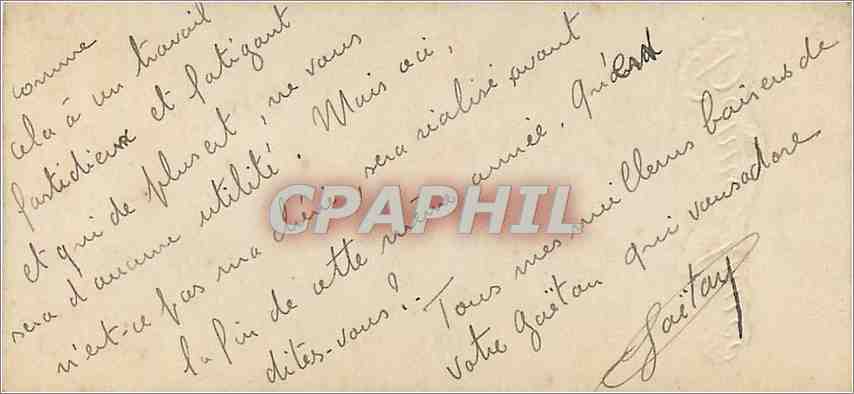 comme
cela à un travail
fastidieux et fatigant
et qui de plus est, ne vous
sera d'aucune utilité. Mais ceci,
n'est-ce pas ma chérie, sera réalisé avant
la fin de cette même année. Qu'en
dites-vous?. Tous mes meilleurs baisers de
votre Gaëtan qui vous adore
Gaëtan
CPAPHIL